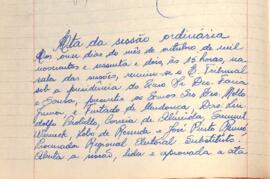 Ata da sessão ordinária
Aos onze dias do mês de outubro de mil
novecentos e sessenta e dois, às 15 horas, na
sala das sessões, reuniu-se o E. Tribunal
sob a presidência do Exmo Sr. Des.
e Souza, presentes os Exmos Srs Des. Mello
Junior, e Furtado de Mendonça, Drs.
Correia de Almeida,
Lobo de Resende e José
Procurador Regional Eleitoral Substituto.
Aberta a sessão, lida e aprovada a ata